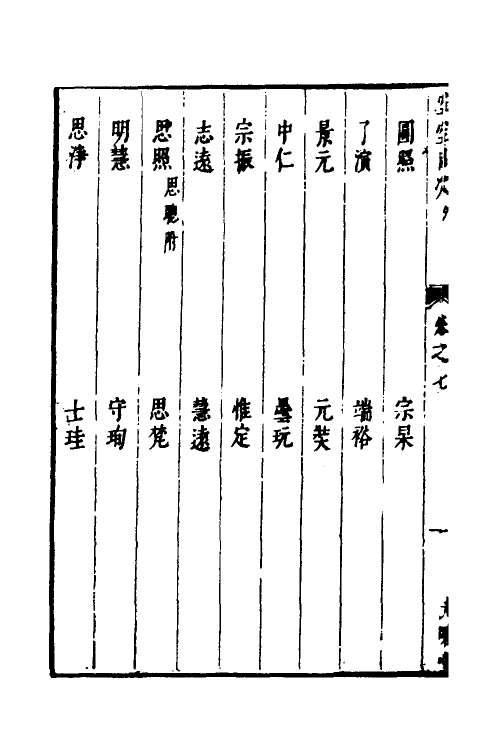 圓照　宗杲
了演　端裕
景元　元奘
中仁　曇玩
宗振　惟定
志遠　慧遠
思照　思聰附　思梵
明慧　守珣
思淨　士珪
卷之七
一